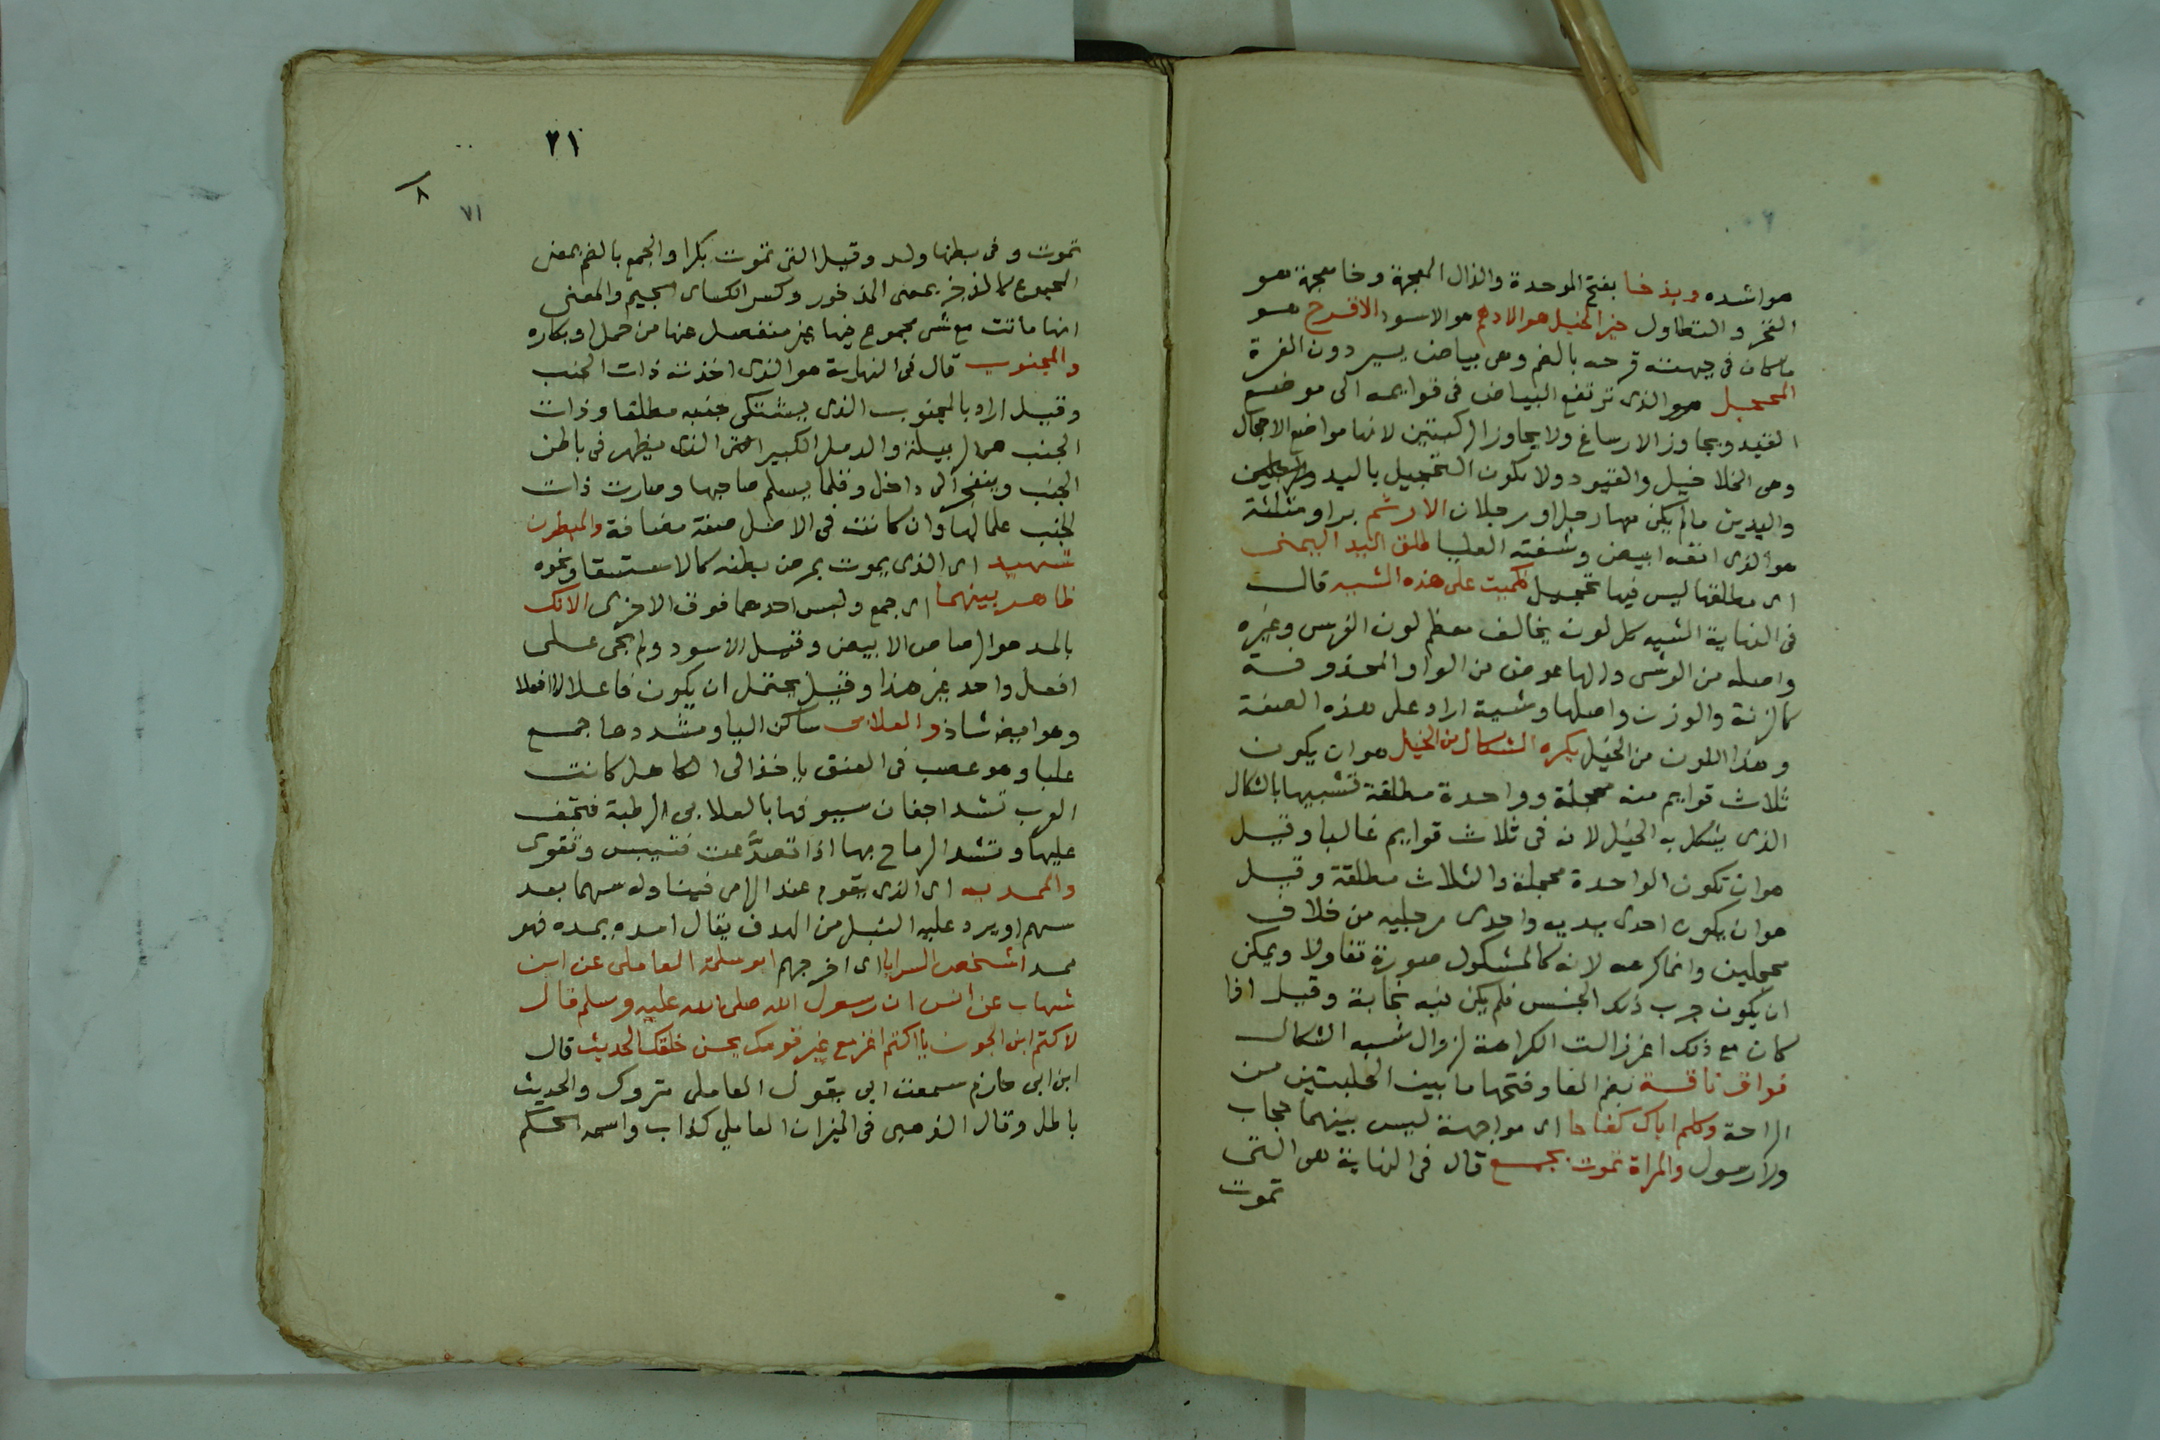 هو اشده وبذخا بفتح الموحدة والذال المعجمة وخا معجمة هو
الفخر والتطاول خير الخيل هو الادهم هو الاسود الاقرح هو
ماكان فى جبهته قرحه بالضم وهى بياض يسير دون الغرة
المحجل هو الذى ترتفع البياض فى قوايمه الى موضع
القيد ويجاوز الارساغ ولا يجاوز الركبتين لانها مواضع الاحجال
وهى الخلاخيل والقيود ولا يكون التحجيل باليد
واليدين مالم يكن معها رجل او رجلان الارثم برا ومثلثة
هو الذى انفه ابيض وشفته العليا طلق اليد اليمنى
اى مطلقها ليس فيها تحجيل فكميت على هذه الشيه قال
فى النهاية الشيه كل لون يخالف معظم لون الفرس وغيره
واصله من الوشى والها عوض من الواو المحذوفة
كالزنة والوزن واصلها وشية اراد على هذه الصفة
وهذا اللون من الخيل يكره الشكال من الخيل هو ان يكون
ثلاث قوايم منه محجلة وواحدة مطلقة تشبيها بالشكال
الذى يشكل به الخيل لانه فى ثلاث قوايم غالبا وقيل
هو ان تكون الواحدة محجلة والثلاث مطلقة وقيل
هو ان يكون احدى يديه واحدى رجليه من خلاف
محجلين وانما كرهه لانه كالمشكول صورة تفاولا ويمكن
ان يكون جرب ذلك الجنس فلم يكن فيه نجابة وقيل اذا
كان مع ذلك اغر زالت الكراهة لزوال شبه الشكال
فواق ناقة بضم الفا وفتحها ما بين الحلبتين من
الراحة وكلم اباك كفاحا اى مواجهة ليس بينهما حجاب
ولا رسول والمراة تموت بجمع قال فى النهاية هى التى
تموت
٢١
٨
٧١
تموت وفى بطنها ولد وقيل التى تموت بكرا والجمع بالضم بمعنى
المجموع كالذخر بمعنى المذخور وكسر الكساى الجيم والمعنى
انها ماتت مع شى مجموع فيها غير منفصل عنها من حمل او بكاره
والمجنوب قال فى النهاية هو الذى اخذته ذات الجنب
وقيل اراد بالمجنوب الذى يشتكى جنبه مطلقا وذات
الجنب هى الدبيلة والدمل الكبيرة التى الذى يظهر فى باطن
الجنب وينفجر الى داخل وقلما يسلم صاحبها وصارت ذات
الجنب علما لها وان كانت فى الاصل صفة مضافة والمبطون
شهيد اى الذى يموت بمرض بطنه كالاستسقا ونحوه
ظاهر بينهما اى جمع ولبس احدهما فوق الاخرى الانك
بالمد هو الرصاص الابيض وقيل الاسود ولم يجى على
افعل واحد غير هذا وقيل يحتمل ان يكون فاعلا لا افعلا
وهو ايضا شاذ والعلابى ساكن اليا ومشددها جمع
علبا وهو عصب فى العنق ياخذ الى الكاهل كانت
العرب تشد اجفان سيوفها بالعلابى الرطبة فتجف
عليها وتشد الرماح بها اذا تصدعت فتيبس وتقوى
والممد به اى الذى يقوم عند الرامى فيناوله سهما بعد
سهم او يرد عليه النبل من الهدف يقال امده يمده فهو
ممد اشخص السرايا اى اخرجهم ابو سلمة العاملى عن ابن
شهاب عن انس ان رسول الله صلى الله عليه وسلم قال
لاكثم ابن الجون يا اكثم اغز مع غير قومك يحسن خلقك الحديث قال
ابن ابى حازم سمعت ابى يقول العاملى متروك والحديث
باطل وقال الذهبى فى الميزان العاملى كذاب واسمه الحكم